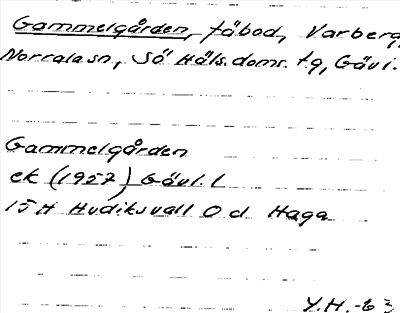 Gammelgården, fäbod, Varberg,
Norrala sn, Sö Häls. doms. tg, Gävl.
Gammelgården
ek (1957) Gävl. l
15H Hudiksvall 0 d Haga
Y.H. -63